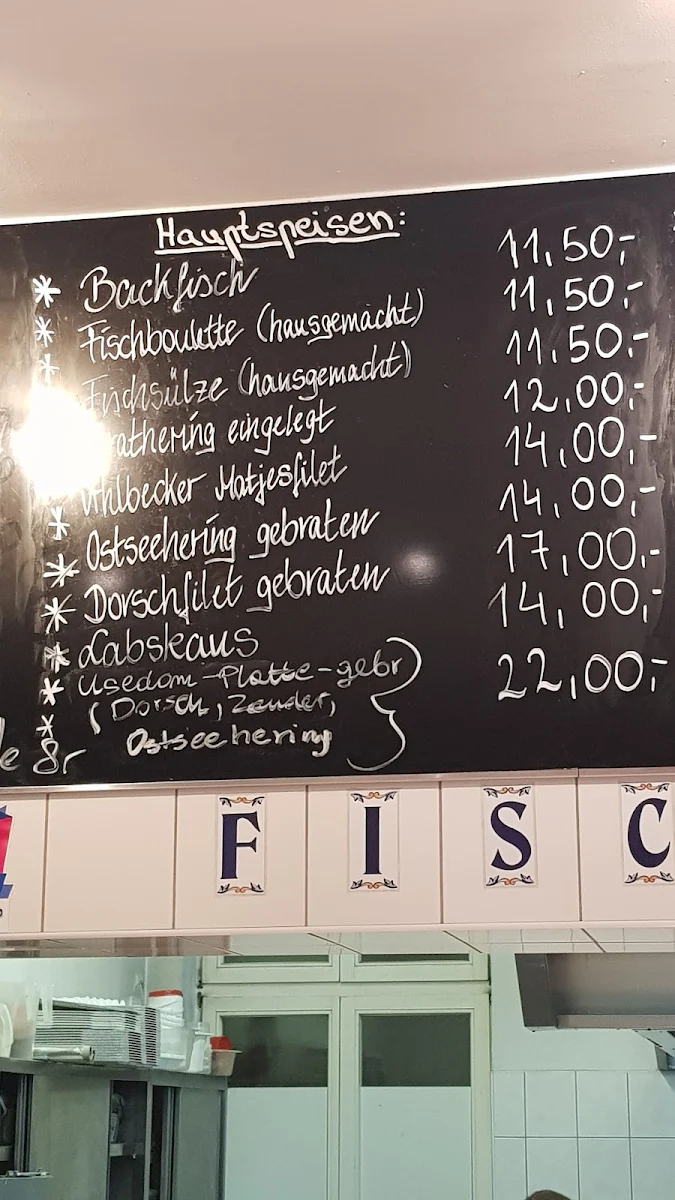 Hauptspeisen:
* Backfisch 11,50,-
* Fischboulette (hausgemacht) 11,50,-
* Fischsülze (hausgemacht) 11.50.-
rathering eingelegt 12,00,-
Ahlbecker Matjesfilet 14,00,-
* Ostseehering gebraten 14,00,-
* Dorschfilet gebraten 17,00,-
* Labskaus 14,00,-
* Usedom-Platte-gebr) 22,00,-
* (Dorsch, Zander,
* Ostseehering
F I S C